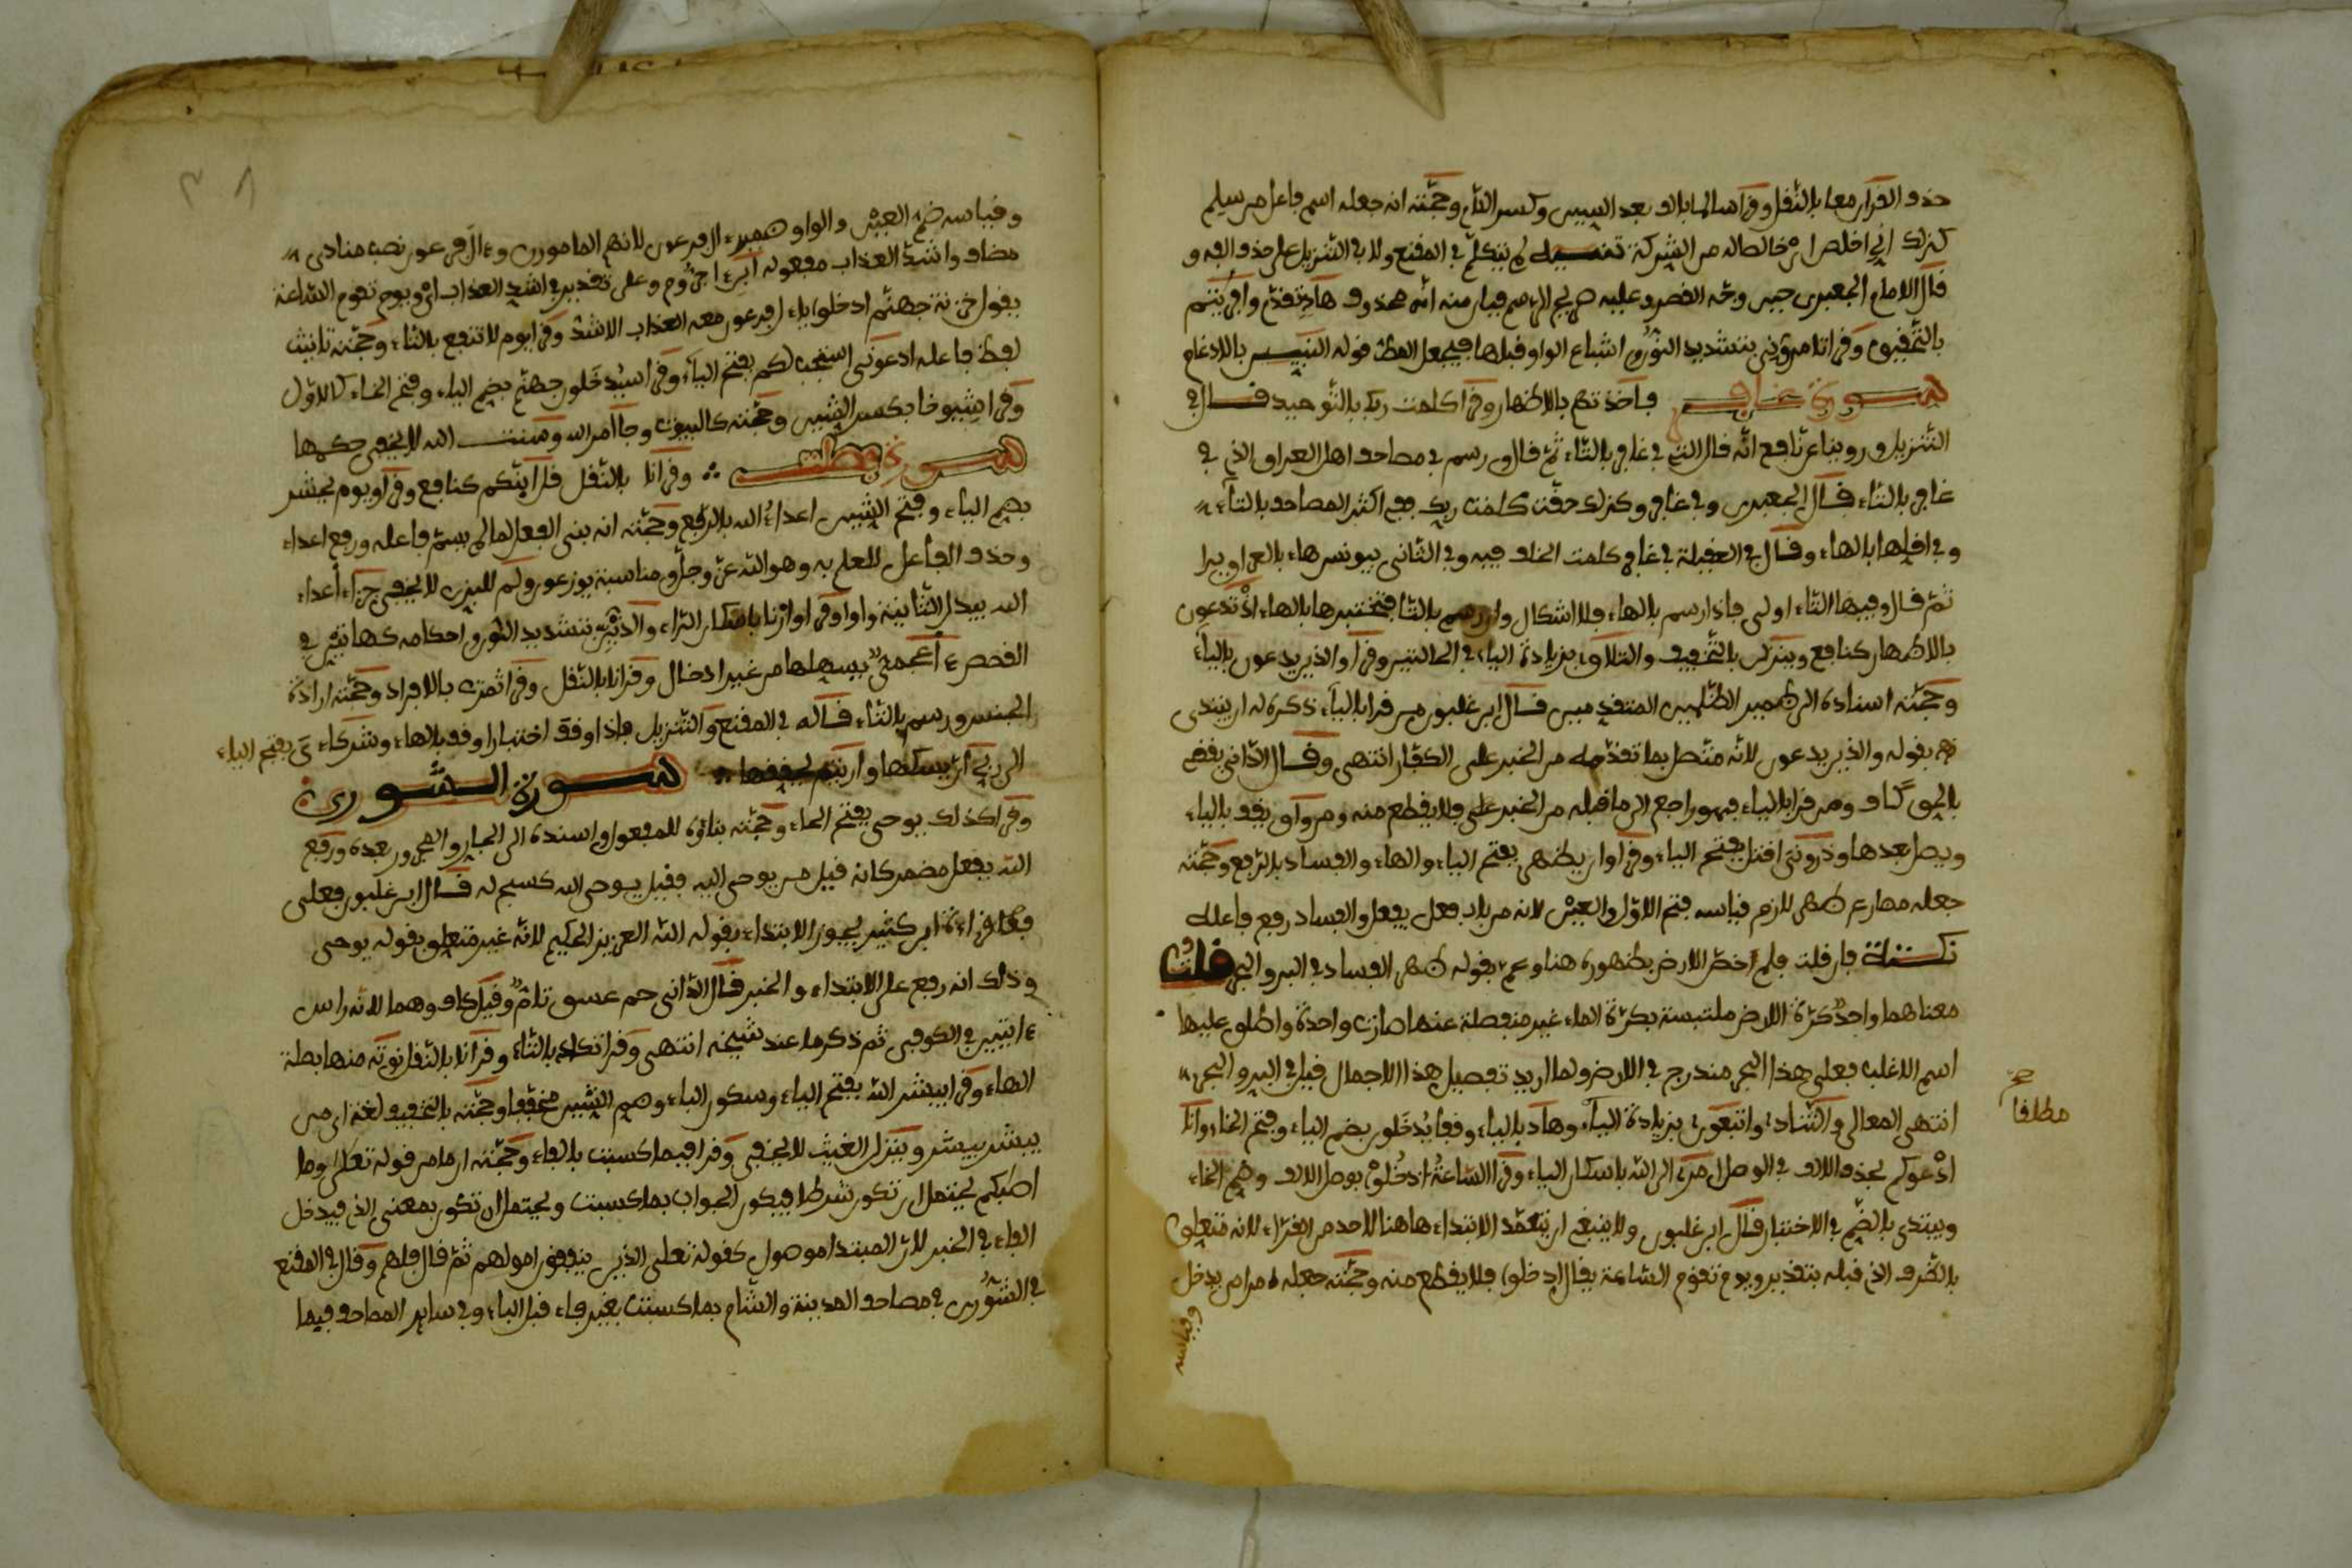 حذف القرآن معا بالنقل وقرأ سالما بالف بعد السين وكسر اللام وحجته انه جعله اسم فاعل من سلم
كذلك اي اخلص اي خالصا له من الشركة تنبيه لم يتكلم في المقنع ولا في التنزيل على حذف الفه و
قال الامام الجعبري حيث وجه القصر وعليه صريح الرسم فبان منه انه محذوف هاد تقدم وافرايتم
بالتخفيف وقرا تامروني بتشديد النون اشباع الواو قبلها فيجعل المكث قوله النبيين بالادغام
سورة غافر فاخذتهم بالاظهار وقرا كلمت ربك بالتوحيد قال في
التنزيل وروينا عن نافع انه قال التي في غافر بالتاء ثم قال ورسم في مصاحف اهل العراق الذي في
غافر بالتاء قال الجعبري وفي غافر وكذلك حقت كلمت ربك ففي اكثر المصاحف بالتاء
وفي اقلها بالهاء وقال في العقيلة في غافر كلمت الخلف فيه وفي الثاني بيونس هاء بالعراق يرا
ثم قال وفيها التاء اولى فاذا رسم بالهاء فلا اشكال وان رسم بالتا فتختبرها بالهاء اذ تدعون
بالاظهار كنافع وينزل بالتخفيف والتلاق بزيادة الياء في الحالتين وقرا والذين يدعون بالياء
وحجته اسناده الى ضمير الظلمين المتقدمين قال ابن غلبون من قرا بالياء ذكره له ان يبتدي
بقوله والذين يدعون لانه متصل بما تقدمه من الخبر على الكفار انتهى وقال الداني يقضي
بالحق كاف ومن قرا بالياء فهو راجع الى ما قبله من الخبر على فلا يقطع منه ومن واق يقف بالياء
ويصل بعدها وذروني اقتل بفتح الياء وقرا وان يظهر بفتح الياء والهاء والفساد بالرفع وحجته
جعله مضارع ظهر للازم قياسه فتح الاول والعين لانه من باب فعل يفعل والفساد رفع فاعله
نكتة فان قلت فلم اخص الارض بظهوره هنا وعم بقوله ظهر الفساد في البر والبحر قلت
معناهما واحد كرة الارض ملتبسة بكرة الماء غير منفصلة عنها صارت واحدة واطلق عليها
اسم الاغلب فعلى هذا البحر مندرج في الارض ولما اريد تفصيل هذا الاجمال قيل في البر والبحر
انتهى المعالي والتناد واتبعون بزيادة الياء وهاد بالياء وقفا يدخلون بضم الياء وفتح الخاء وانا
ادعوكم بحذف الالف في الوصل امري الى الله باسكان الياء وقرا الساعة ادخلوا بوصل الالف وضم الخاء
ويبتدي بالضم في الاختبار قال ابن غلبون ولا ينبغي ان يتعمد الابتداء هاهنا لاحد من القراء لانه متعلق
بالظرف الذي قبله بتقدير ويوم تقوم الساعة يقال ادخلوا فلا يقطع منه وحجته جعله امرا من يدخل
وقياسه
صح
مطلقا
وقياسه ضم العين والواو ضمير ال فرعون لانهم المامورون وءال فرعون نصب منادى
مضاف واشد العذاب مفعوله وعلى تقدير في اشد العذاب اي ويوم تقوم الساعة
يقول خزنة جهنم ادخلوا يا ال فرعون معه العذاب الاشد وقرا يوم لا تنفع بالتاء وحجته تانيث
لفظ فاعله ادعوني استجب لكم بفتح الياء وقرا سيدخلون جهنم بضم الياء وفتح الخاء كالاول
وقرا شيوخا بكسر الشين وحجته كالبيوت وجاء امر الله وسنت الله لا يخفى حكمها
سورة فصلت وقرانا بالنقل قل اينكم كنافع وقرا ويوم يحشر
بضم الياء وفتح الشين اعداء الله بالرفع وحجته انه بنى الفعل لما لم يسم فاعله ورفع اعداء
وحذف الفاعل للعلم به وهو الله عز وجل ومناسبة يوزعون ولم للبزي لا يخفى جزاء اعداء
الله يبدل الثانية واوا وقرا ارنا باسكان الراء والذين بتشديد النون واحكامه كهاتين في
القصص ءاعجمي بسهلها من غير ادخال وقرانا بالنقل وقرا ثمرت بالافراد وحجته ارادة
الجنس ورسم بالتاء قاله في المقنع والتنزيل فاذا وقف اختبارا وقف بالهاء وشركاء ي بفتح الياء
الى ربي ان يسكنها وارايتم يخففها سورة الشورى
وقرا كذلك يوحى بفتح الحاء وحجته بناؤه للمفعول واسنده الى الجار والمجرور بعده ورفع
الله بفعل مضمر كانه قيل من يوحي اليه فقيل يوحي الله كسبح له قال ابن غلبون فعلى
قراءة ابن كثير يجوز الابتداء بقوله الله العزيز الحكيم لانه غير متعلق بقوله يوحى
وذلك انه رفع على الابتداء والخبر قال الداني حم عسق تام وقيل كاف وهما لانه راس
ءايتين في الكوفي ثم ذكر ما عند شيخه انتهى وقرا تكاد بالتاء وقرانا بالنقل نوته منها بصلة
الهاء وقرا يبشر الله بفتح الياء وسكون الباء وضم الشين مخففا وحجته بالتخفيف لغة اي من
يبشر يبشر وينزل الغيث لا يخفى وقرا فبما كسبت بالفاء وحجته ان ما من قوله تعلى وما
اصابكم يحتمل ان تكون شرطا فيكون الجواب بما كسبت ويحتمل ان تكون بمعنى الذي فيدخل
الفاء في الخبر لان المبتدا موصول كقوله تعلى الذين ينفقون امولهم ثم قال فلهم وقال في المقنع
في الشورى في مصاحف المدينة والشام بما كسبت بغير فاء قبل الباء وفي ساير المصاحف فبما